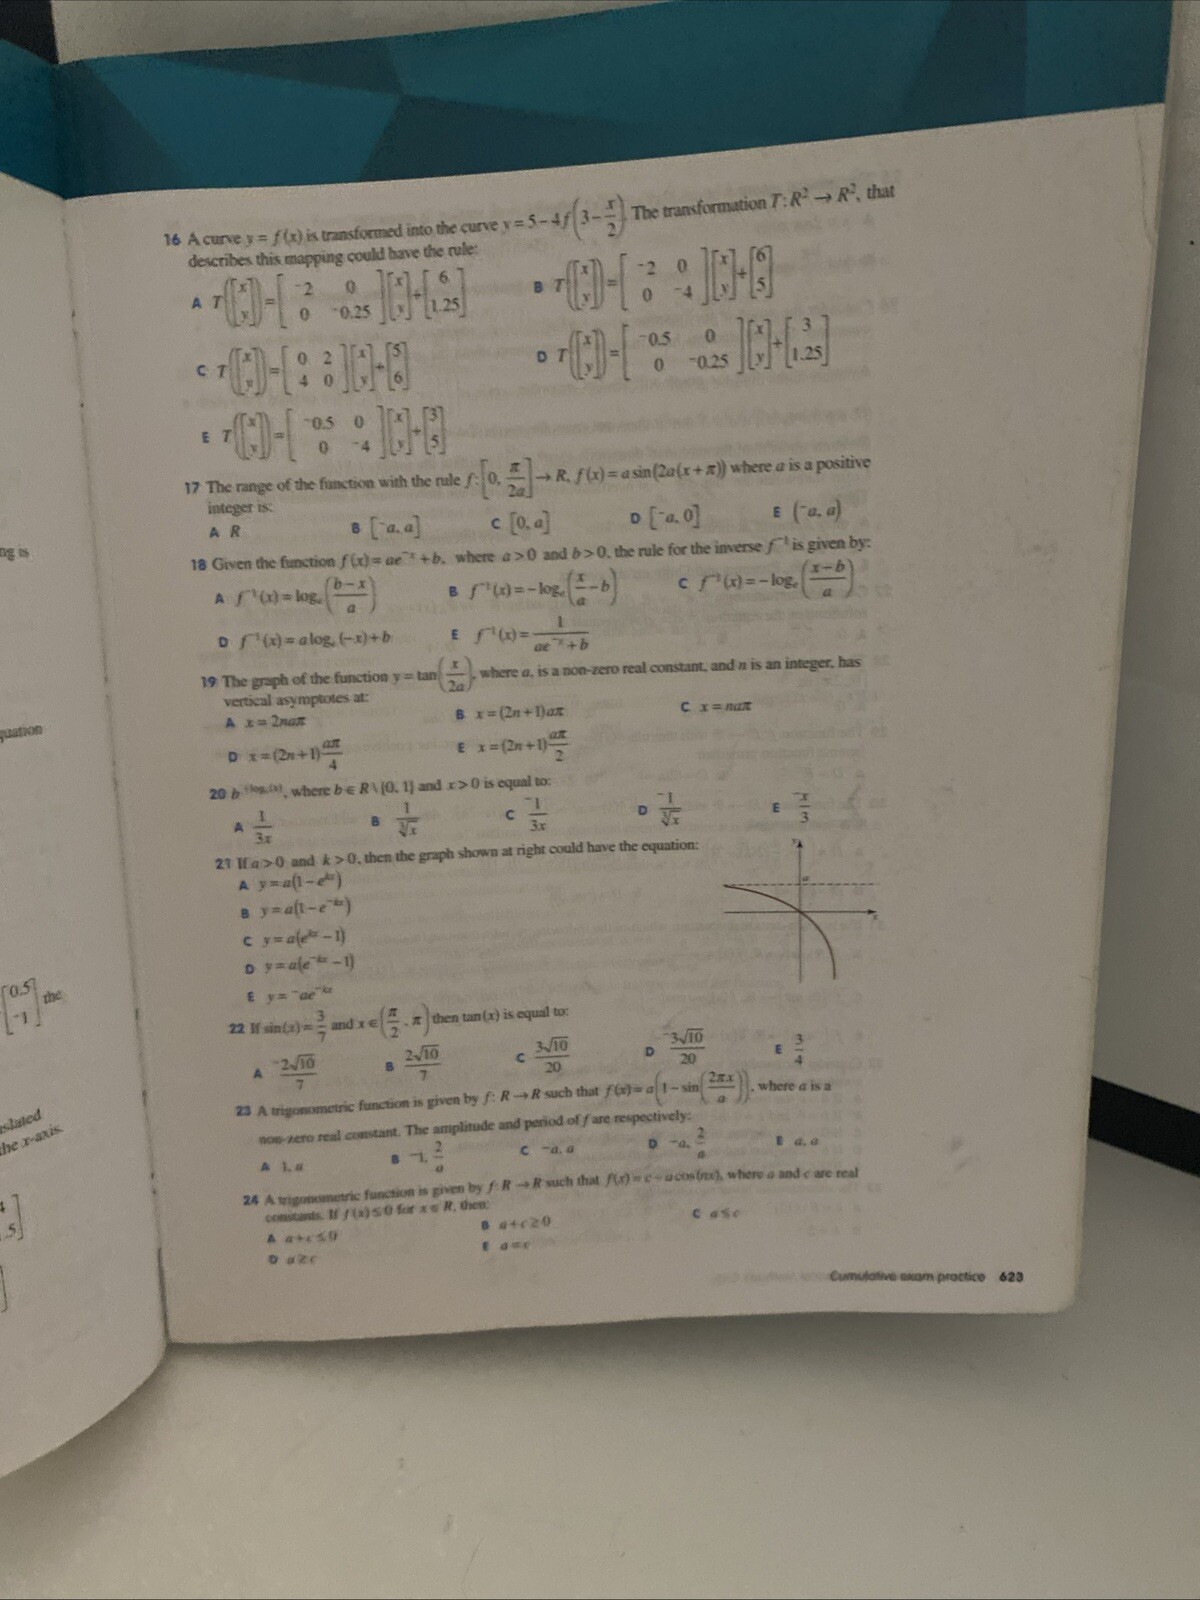 16 A curve y = f(x) is transformed into the curve y = 5 − 4f(3 − x/2). The transformation T: R² → R², that
describes this mapping could have the rule:
A T([x y]) = [⁻2 0; 0 ⁻0.25][x y] + [6 1.25]
B T([x y]) = [⁻2 0; 0 ⁻4][x y] + [6 5]
C T([x y]) = [0 2; 4 0][x y] + [5 6]
D T([x y]) = [⁻0.5 0; 0 ⁻0.25][x y] + [3 1.25]
E T([x y]) = [⁻0.5 0; 0 ⁻4][x y] + [3 5]
17 The range of the function with the rule f: [0, π/2a] → R, f(x) = a sin(2a(x + π)) where a is a positive
integer is:
A R B [⁻a, a] C [0, a] D [⁻a, 0] E (⁻a, a)
18 Given the function f(x) = ae⁻ˣ + b, where a > 0 and b > 0, the rule for the inverse f⁻¹ is given by:
A f⁻¹(x) = logₑ((b − x)/a) B f⁻¹(x) = −logₑ(x/a − b) C f⁻¹(x) = −logₑ((x − b)/a)
D f⁻¹(x) = a logₑ(−x) + b E f⁻¹(x) = 1/(ae⁻ˣ + b)
19 The graph of the function y = tan(x/2a), where a, is a non-zero real constant, and n is an integer, has
vertical asymptotes at:
A x = 2naπ B x = (2n + 1)aπ C x = naπ
D x = (2n + 1)aπ/4 E x = (2n + 1)aπ/2
20 b, where b ∈ R \ {0, 1} and x > 0 is equal to:
A 1/3x B 1/∛x C ⁻1/3x D ⁻1/∛x E ⁻x/3
21 If a > 0 and k > 0, then the graph shown at right could have the equation:
A y = a(1 − eᵏˣ)
B y = a(1 − e⁻ᵏˣ)
C y = a(eᵏˣ − 1)
D y = a(e⁻ᵏˣ − 1)
E y = ⁻ae⁻ᵏˣ
y
a
x
22 If sin(x) = 3/7 and x ∈ (π/2, π) then tan(x) is equal to:
A ⁻2√10/7 B 2√10/7 C 3√10/20 D ⁻3√10/20 E 3/4
23 A trigonometric function is given by f: R → R such that f(x) = a(1 − sin(2πx/a)), where a is a
non-zero real constant. The amplitude and period of f are respectively:
A 1, a B ⁻1, 2/a C ⁻a, a D ⁻a, 2/a E a, a
24 A trigonometric function is given by f: R → R such that f(x) = c − a cos(nx), where a and c are real
constants. If f(x) ≤ 0 for x ∈ R, then:
A a + c ≤ 0 B a + c ≥ 0 C a ≤ c
D a ≥ c E a = c
Cumulative exam practice 623
ng is
quation
[0.5 ⁻1] the
slated
the x-axis.